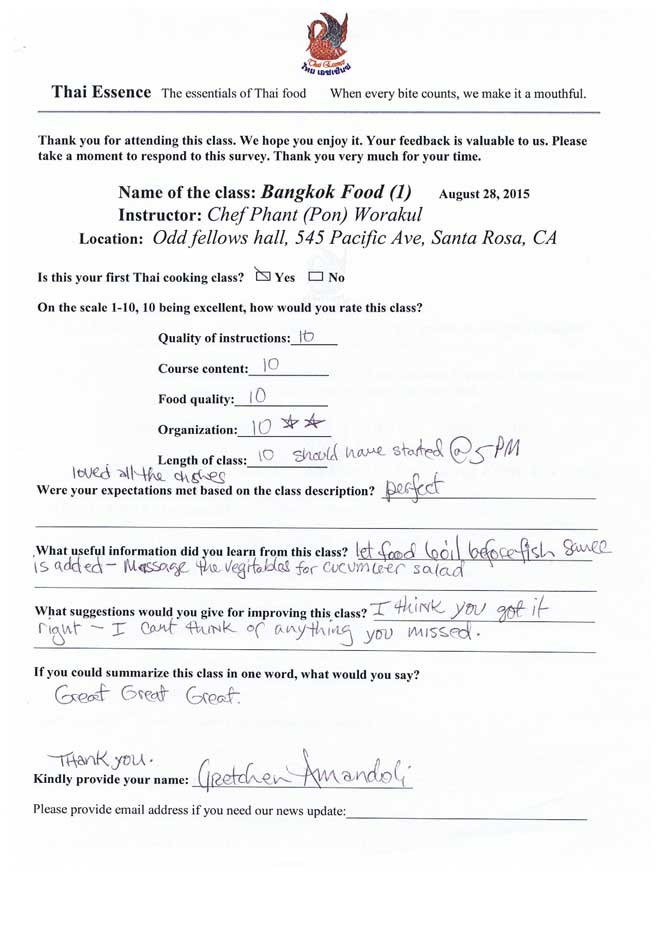 Thai Essence
ไทย เอซเซ้นซ์
Thai Essence The essentials of Thai food When every bite counts, we make it a mouthful.
Thank you for attending this class. We hope you enjoy it. Your feedback is valuable to us. Please
take a moment to respond to this survey. Thank you very much for your time.
Name of the class: Bangkok Food (1) August 28, 2015
Instructor: Chef Phant (Pon) Worakul
Location: Odd fellows hall, 545 Pacific Ave, Santa Rosa, CA
Is this your first Thai cooking class? Yes No
On the scale 1-10, 10 being excellent, how would you rate this class?
Quality of instructions: 10
Course content: 10
Food quality: 10
Organization: 10 ☆ ☆
Length of class: 10 should have started @ 5 PM
loved all the dishes
Were your expectations met based on the class description? perfect
What useful information did you learn from this class? let food boil before fish sauce
is added - Massage the vegitables for cucumber salad
What suggestions would you give for improving this class? I think you got it
right - I cant think of anything you missed.
If you could summarize this class in one word, what would you say?
Great Great Great.
THank you.
Kindly provide your name: Gretchen Amandoli
Please provide email address if you need our news update: